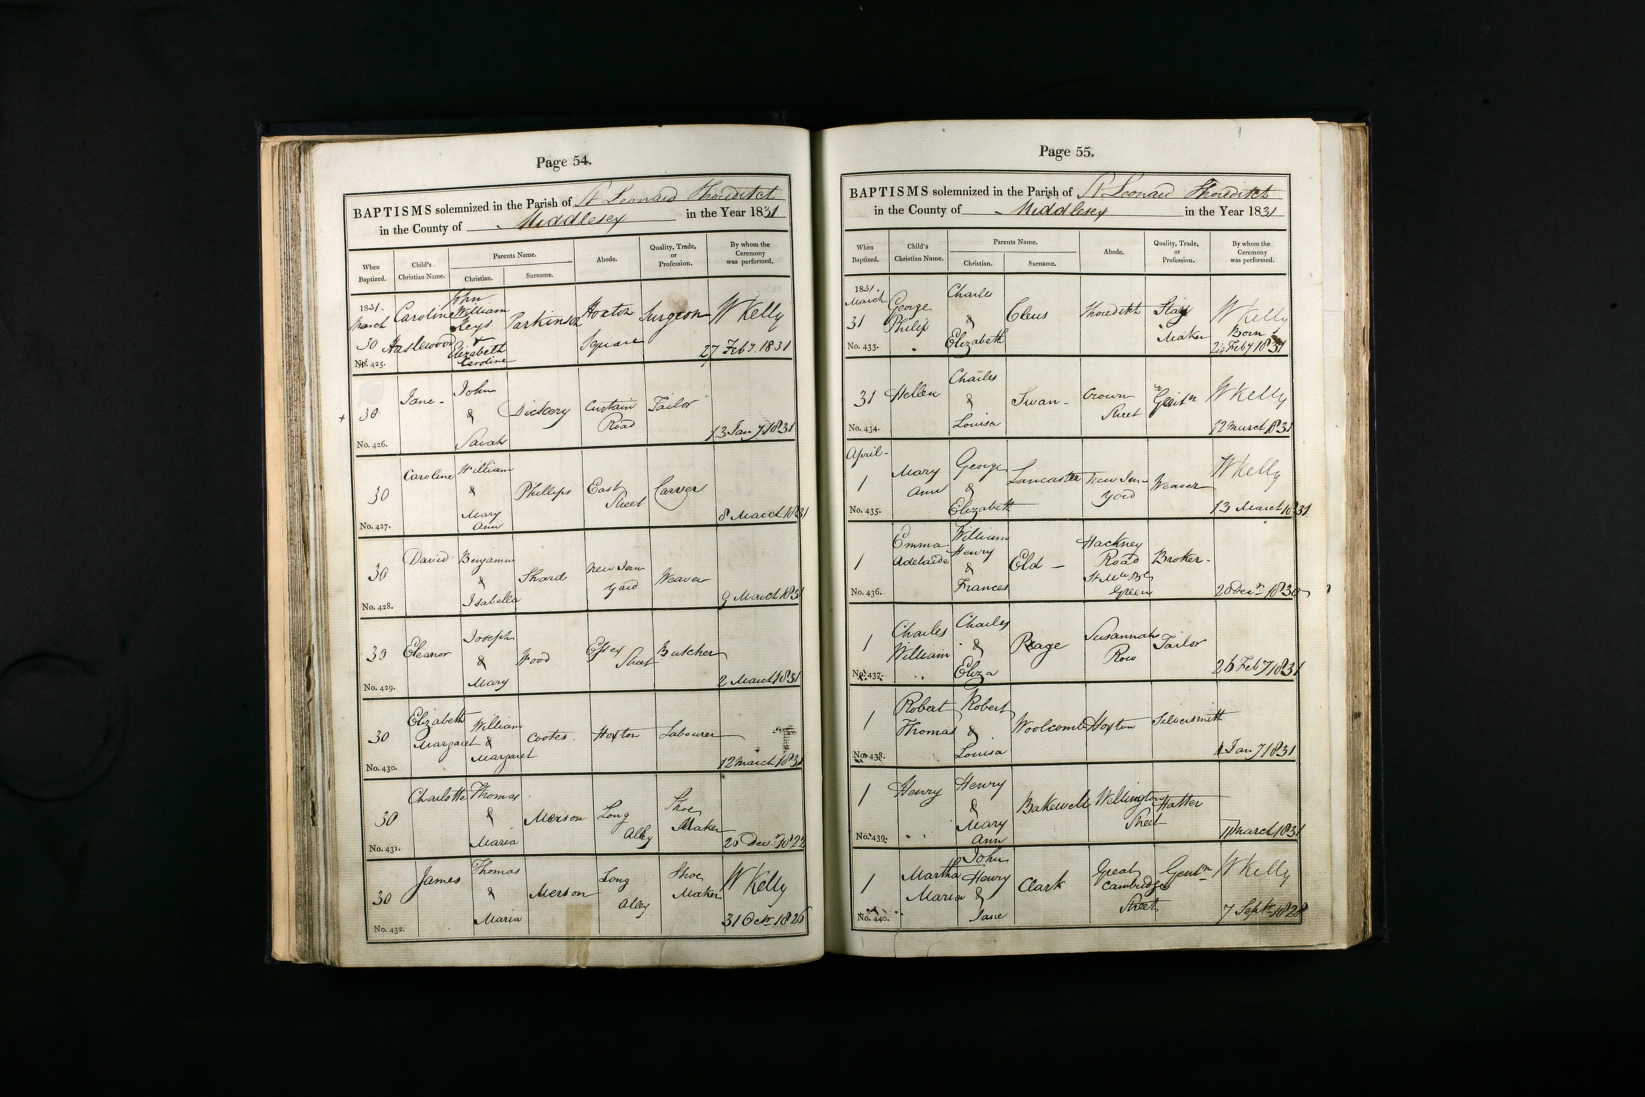 Page 54.
BAPTISMS solemnized in the Parish of St Leonard Shoreditch
in the County of Middlesex in the Year 1831
When Baptized. Child's Christian Name. Parents Name. Christian. Surname. Abode. Quality, Trade, or Profession. By whom the Ceremony was performed.
1831. John
March Caroline William Hoxton Surgeon W Kelly
Keys Parkinson
30 Haslewood & Square
Elizabeth
No. 425. Caroline 27 Feby. 1831
Jane - John
30 & Dickery Curtain Tailor
Road
No. 426. Sarah 13 Jany 1831
Caroline William
30 & Phillips East Carver
Street
Mary
No. 427. Ann 8 March 1831
David Benjamin
30 & Shard New Inn Weaver
Yard
No. 428. Isabella 9 March 1831
Joseph
30 Eleanor & Wood Essex Butcher
Street
No. 429. Mary 2 March 1831
Elizabeth William
30 Margaret & Cootes Hoxton Labourer
No. 430. Margaret 12 March 1831
Charlotte Thomas
30 & Merson Long Shoe
Alley Maker
No. 431. Maria 20 Decr 1822
James Thomas
30 & Merson Long Shoe W Kelly
Alley Maker
No. 432. Maria 31 Octr 1826
Page 55.
BAPTISMS solemnized in the Parish of St Leonard Shoreditch
in the County of Middlesex in the Year 1831
When Baptized. Child's Christian Name. Parents Name. Christian. Surname. Abode. Quality, Trade, or Profession. By whom the Ceremony was performed.
1831.
March George Charles
31 Philip & Cleus Shoreditch Stay W Kelly
Maker Born
No. 433. Elizabeth Feby 1831
Charles
31 Hellen & Swan - Crown W Kelly
Street
No. 434. Louisa 12 March 1831
April -
Mary George
1 Ann & Lancaster New Inn Weaver W Kelly
Yard
No. 435. Elizabeth 13 March 1831
Emma William Hackney
Adelaide Henry Road
1 & Eld - Broker -
No. 436. Frances Green 20 Decr 1830
Charles Charles
1 William & Page Susannah Tailor
Row
No. 437. Eliza 26 Feby 1831
Robert Robert
1 Thomas & Woolcomb Hoxton Silversmith
No. 438. Louisa 1 Jany 1831
Henry Henry
1 & Bakewell Wellington Hatter
Mary Street
No. 439. Ann March 1831
John
Martha Henry Great
1 Maria & Clark Cambridge Gentn W Kelly
Street
No. 440. Jane 7 Sept 1828